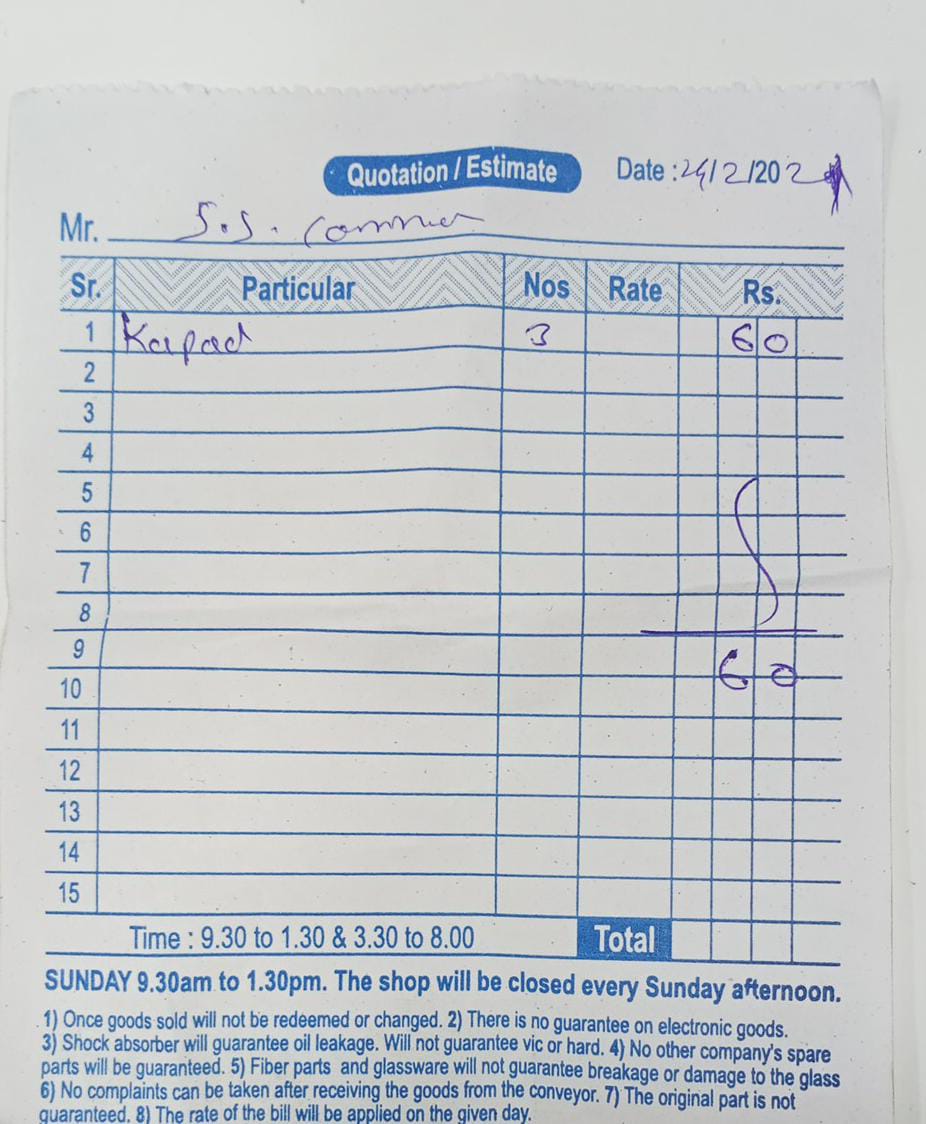 Quotation / Estimate Date : 24/2/202
Mr. S.S.
Sr. Particular Nos Rate Rs.
1 Kapad 3 60
2
3
4
5
6
7
8
9
60
10
11
12
13
14
15
Time : 9.30 to 1.30 & 3.30 to 8.00 Total
SUNDAY 9.30am to 1.30pm. The shop will be closed every Sunday afternoon.
1) Once goods sold will not be redeemed or changed. 2) There is no guarantee on electronic goods.
3) Shock absorber will guarantee oil leakage. Will not guarantee vic or hard. 4) No other company's spare
parts will be guaranteed. 5) Fiber parts and glassware will not guarantee breakage or damage to the glass
6) No complaints can be taken after receiving the goods from the conveyor. 7) The original part is not
guaranteed. 8) The rate of the bill will be applied on the given day.